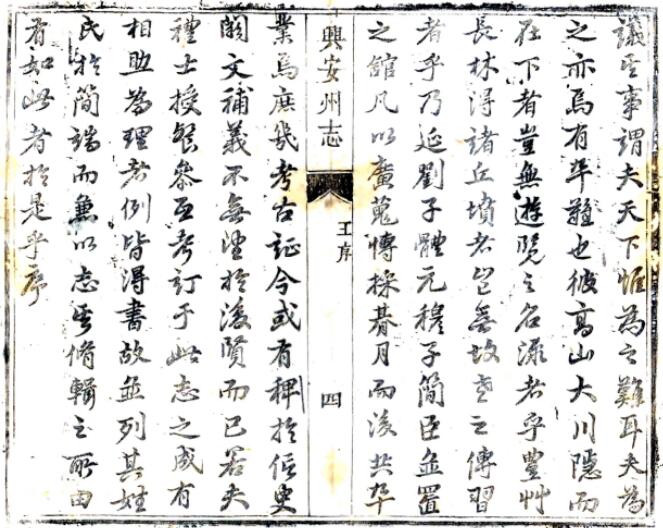 議其事謂夫天下惟為之難耳夫為
之亦烏有卒難也彼高山大川隱而
在下者豈無遊覽之名源者乎豐艸
長林得諸丘墳者豈無故老之傳習
者乎乃延劉子體元穆子簡臣並置
之館凡以廣蒐博採碁月而後共卒
興安州志
王序
四
業焉庶幾考古証今或有稗於信史
闕文補義不無望於後賢而已若夫
禮士授餐叅互考訂于此志之成有
相助為理者例皆得書故並列其姓
氏於簡端而兼以志其脩輯之所由
有如此者於是乎序